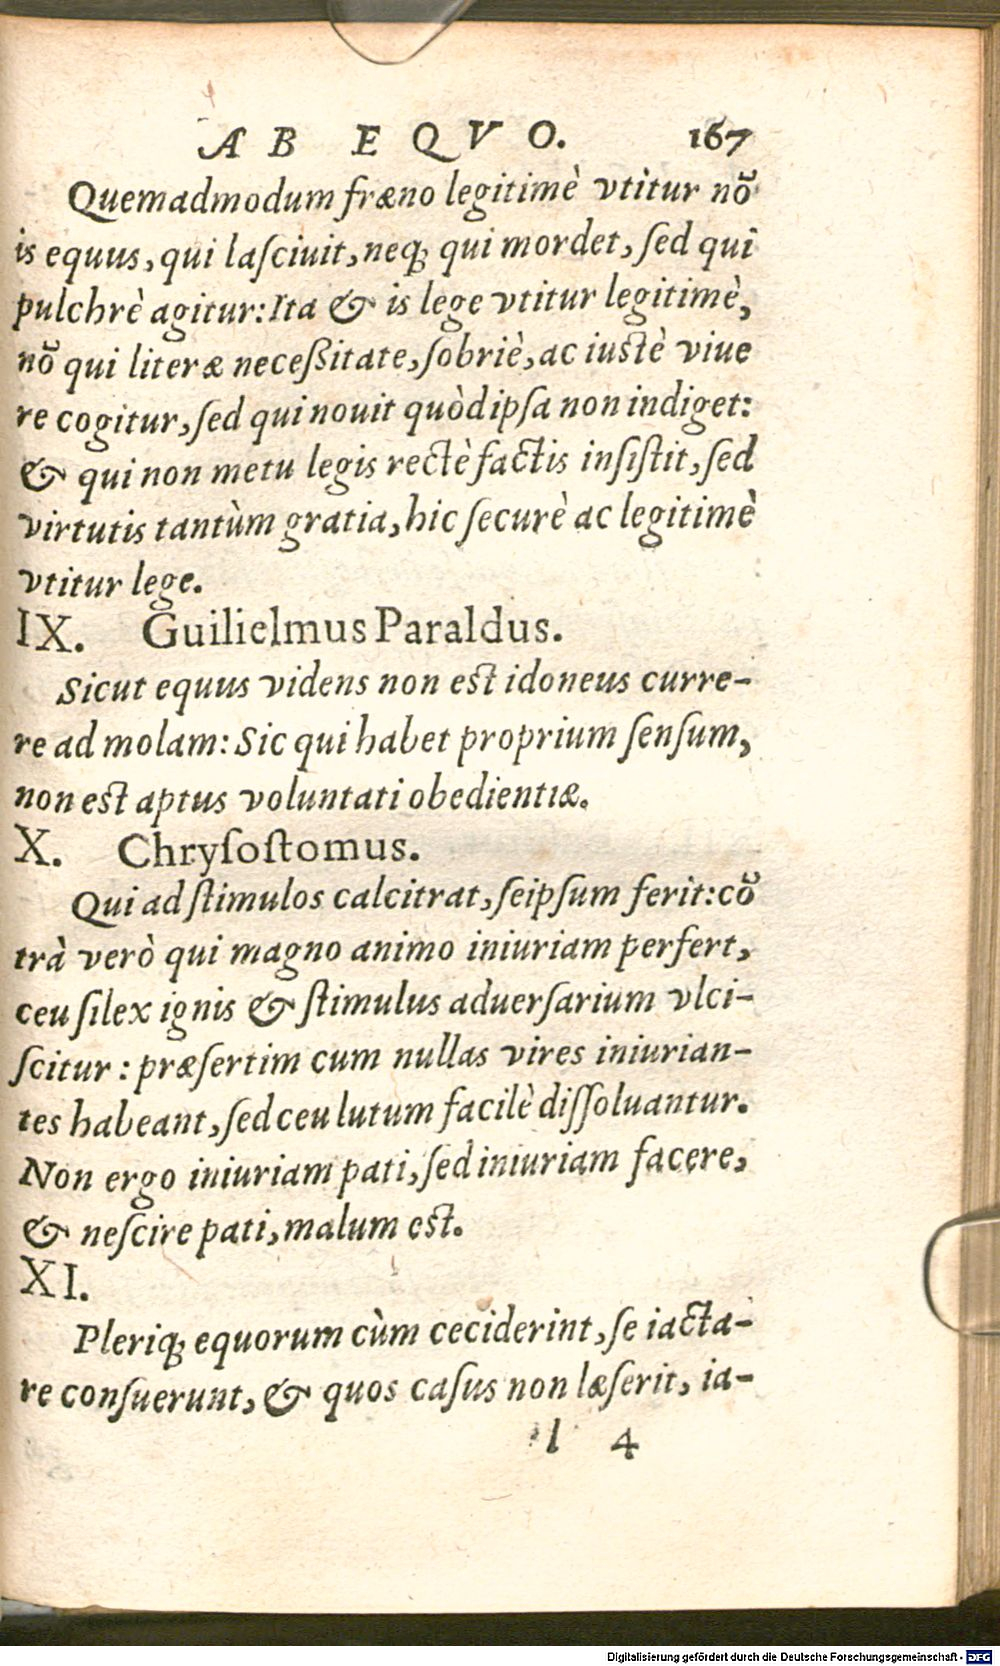 AB EQVO. 167
Quemadmodum fræno legitimè vtitur nō
is equus, qui laſciuit, neq; qui mordet, ſed qui
pulchrè agitur: Ita & is lege vtitur legitimè,
nō qui literæ neceßitate, ſobriè, ac iustè viue
re cogitur, ſed qui nouit quòd ipſa non indiget:
& qui non metu legis rectè factis inſiſtit, ſed
virtutis tantùm gratia, hic ſecurè ac legitimè
vtitur lege.
IX. Guilielmus Paraldus.
Sicut equus videns non est idoneus curre-
re ad molam: Sic qui habet proprium ſenſum,
non est aptus voluntati obedientiæ.
X. Chryſoſtomus.
Qui ad ſtimulos calcitrat, ſeipſum ferit: cō
trà verò qui magno animo iniuriam perfert,
ceu ſilex ignis & ſtimulus aduerſarium vlci-
ſcitur: præſertim cum nullas vires iniurian-
tes habeant, ſed ceu lutum facilè diſſoluantur.
Non ergo iniuriam pati, ſed iniuriam facere,
& neſcire pati, malum est.
XI.
Pleriq; equorum cùm ceciderint, ſe iacta-
re conſuerunt, & quos caſus non læſerit, ia-
l 4
Digitalisierung gefördert durch die Deutsche Forschungsgemeinschaft - DFG